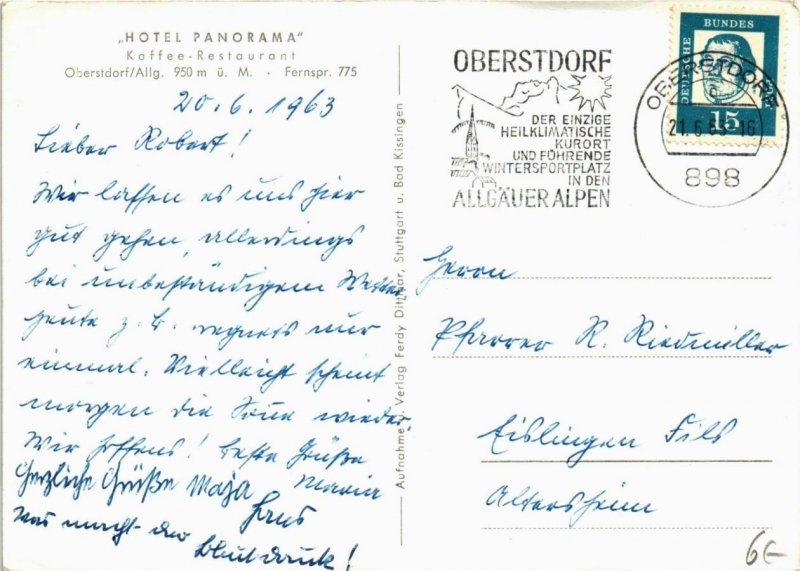 „HOTEL PANORAMA"
Kaffee-Restaurant
Oberstdorf/Allg. 950 m ü. M. · Fernspr. 775
20.6.1963
Lieber Robert!
Wir lassen es uns hier
gut gehen, allerdings
bei unbeständigem Wetter
heute z. B. regnets nur
einmal. Vielleicht scheint
morgen die Sonne wieder.
Wir hoffens! Beste Grüße
Maria
Herzliche Grüße Maja
Hans
Was macht der
Blutdruck!
Aufnahme u. Verlag Ferdy Dittmar, Stuttgart u. Bad Kissingen
OBERSTDORF
DER EINZIGE
HEILKLIMATISCHE
KURORT
UND FÜHRENDE
WINTERSPORTPLATZ
IN DEN
ALLGÄUER ALPEN
OBERSTDORF
21.6.63-16
898
DEUTSCHE
BUNDES
15
Herrn
Pfarrer R. Riedmüller
Eislingen Fils
Altersheim
6€